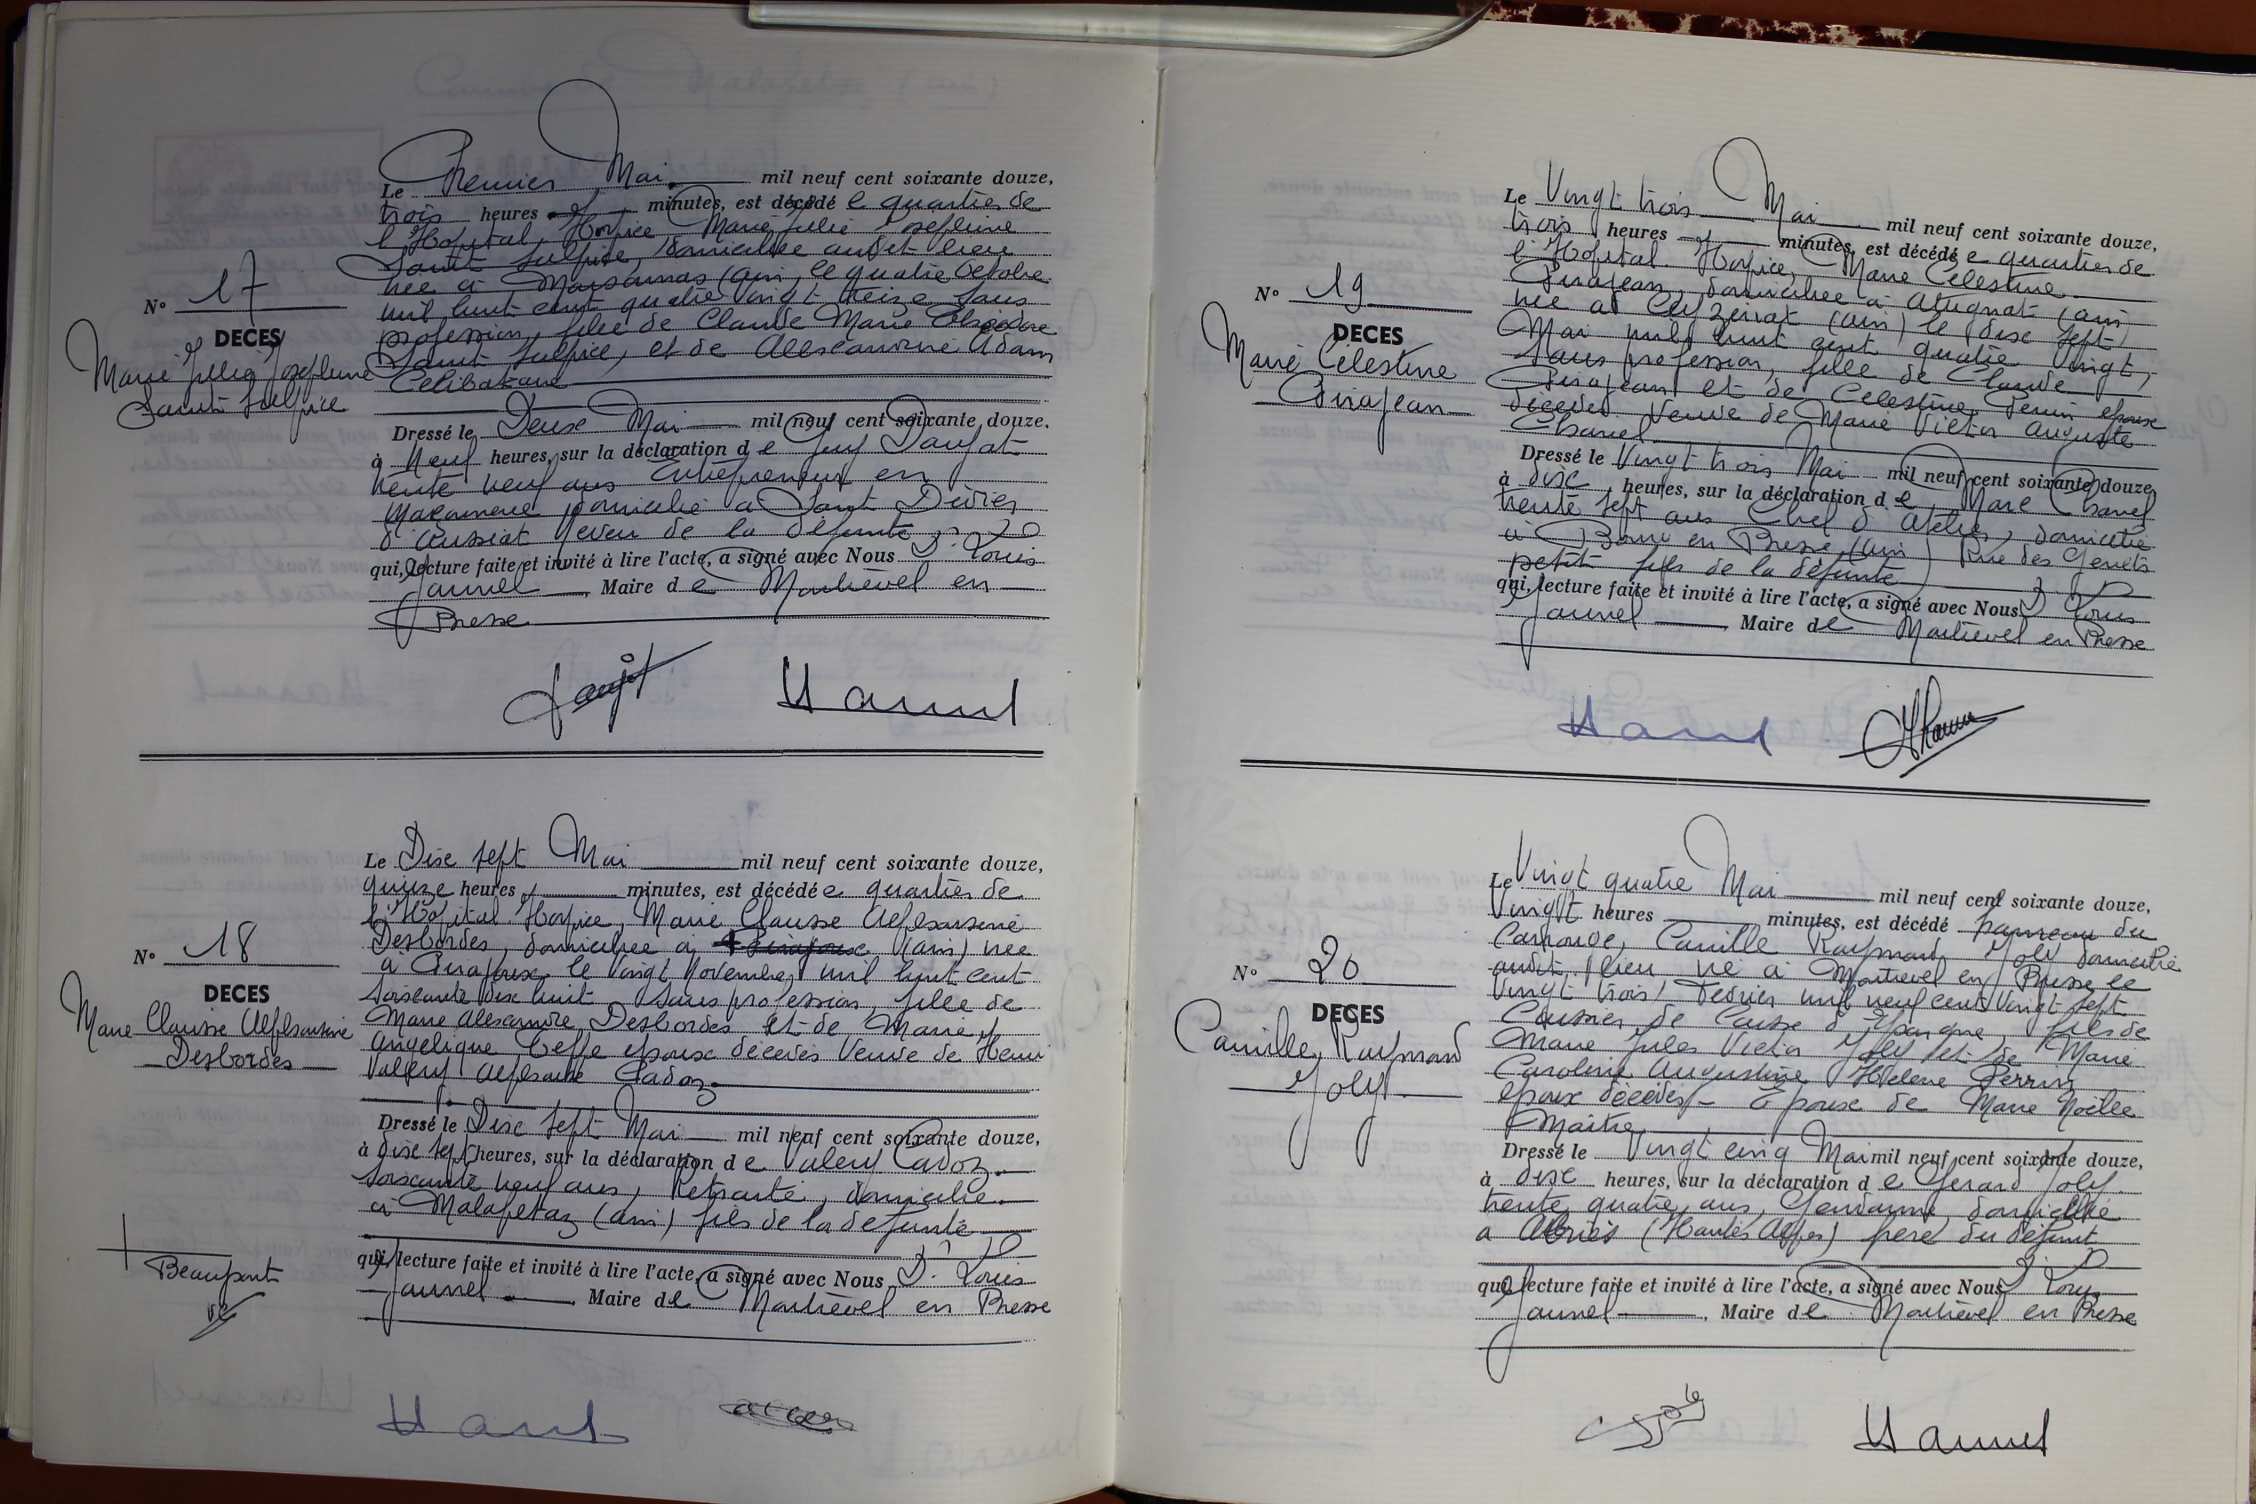 N° 17
DECES
Marie Julie Josephine
Saint Sulpice
Le Premier Mai mil neuf cent soixante douze,
trois heures minutes, est décédé e quartier de
l'Hopital, Hospice, Marie Julie Josephine
Saint Sulpice, domiciliée audit lieu
née à Marsonnas (ain, le quatre Octobre
mil huit cent quatre vingt treize Sans
profession, fille de Claude Marie
Saint Sulpice, et de Alexandrine Adam
Celibataire
Dressé le Deux Mai mil neuf cent soixante douze.
à Neuf heures, sur la déclaration d e Guy Daujat
trente neuf ans Entrepreneur en
maçonnerie domicilié a Saint Didier
d'Aussiat Neveu de la défunte
qui, lecture faite et invité à lire l'acte, a signé avec Nous D. Louis
Jaunel, Maire d e Montrevel en
Bresse
N° 18
DECES
Marie Clausse Alphonsine
Desbordes
Le Dix sept Mai mil neuf cent soixante douze,
quinze heures minutes, est décédé e quartier de
l'Hôpital Hospice, Marie Clausse Alphonsine
Desbordes, domiciliée à (ain) née
à Pirajoux le vingt Novembre mil huit cent
soixante dix huit Sans profession, fille de
Marie Alexandre Desbordes et de Marie
Angelique epoux décédés Veuve de Henri
Valery Alphonse Cadoz
Dressé le Dix sept Mai mil neuf cent soixante douze,
à dix sept heures, sur la déclaration d e Valery Cadoz
soixante neuf ans, Retraité, domicilié
à Malafretaz (ain) fils de la defunte
qui, lecture faite et invité à lire l'acte, a signé avec Nous D. Louis
Jaunel, Maire d e Montrevel en Bresse
Beaupont
N° 19
DECES
Marie Célestine
Pirajean
Le Vingt trois Mai mil neuf cent soixante douze,
trois heures minutes, est décédé e quartier de
l'Hopital Hospice, Marie Celestine
Pirajean, domiciliée à Attignat (ain)
née à Ceyzeriat (ain) le dix sept
Mai mil huit cent quatre vingt,
Sans profession, fille de Claude
Pirajean et de Celestine epoux
décédés Veuve de Marie Victor Auguste
Chanel
Dressé le Vingt trois Mai mil neuf cent soixante douze,
à dix heures, sur la déclaration d e Marc Chanel
trente sept ans Chef d'atelier, domicilié
à Bourg en Bresse (ain) Rue des Genets
petit fils de la défunte
qui, lecture faite et invité à lire l'acte, a signé avec Nous D. Louis
Jaunel, Maire d e Montrevel en Bresse
N° 20
DECES
Camille Raymond
Joly
Le Vingt quatre Mai mil neuf cent soixante douze,
Vingt heures minutes, est décédé hameau du
Carrouge, Camille Raymond Joly domicilié
audit lieu né à Montrevel en Bresse le
vingt trois Fevrier mil neuf cent vingt sept
Caissier de Caisse d'Epargne, fils de
Marie Jules Victor Joly et de Marie
Caroline Augustine Helene Perrin
epoux décédés - Epoux de Marie Noëlle
Maitre
Dressé le Vingt cinq Mai mil neuf cent soixante douze,
à dix heures, sur la déclaration d e Gerard Joly
trente quatre ans, Gendarme domicilié
a Abriès (Hautes Alpes) frere du défunt
qui, lecture faite et invité à lire l'acte, a signé avec Nous D. Louis
Jaunel, Maire d e Montrevel en Bresse